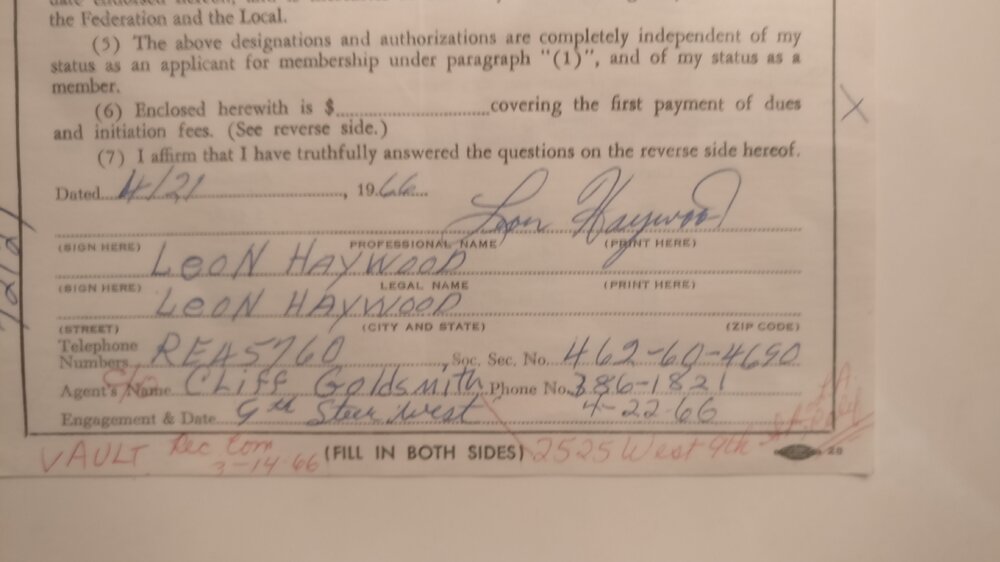 the Federation and the Local.
(5) The above designations and authorizations are completely independent of my
status as an applicant for membership under paragraph "(1)", and of my status as a
member.
(6) Enclosed herewith is $ covering the first payment of dues
and initiation fees. (See reverse side.)
(7) I affirm that I have truthfully answered the questions on the reverse side hereof.
Dated 4/21, 1966
Leon Haywood
(SIGN HERE) PROFESSIONAL NAME (PRINT HERE)
LEON HAYWOOD
(SIGN HERE) LEGAL NAME (PRINT HERE)
LEON HAYWOOD
(STREET) (CITY AND STATE) (ZIP CODE)
Telephone
Numbers REA5760, Soc. Sec. No. 462-60-4690
Agent's Name CLiff Goldsmith Phone No. 386-1821
Engagement & Date West 4-22-66
VAULT Rec Com
3-14-66 (FILL IN BOTH SIDES) 2525 West 9th LA
X
28